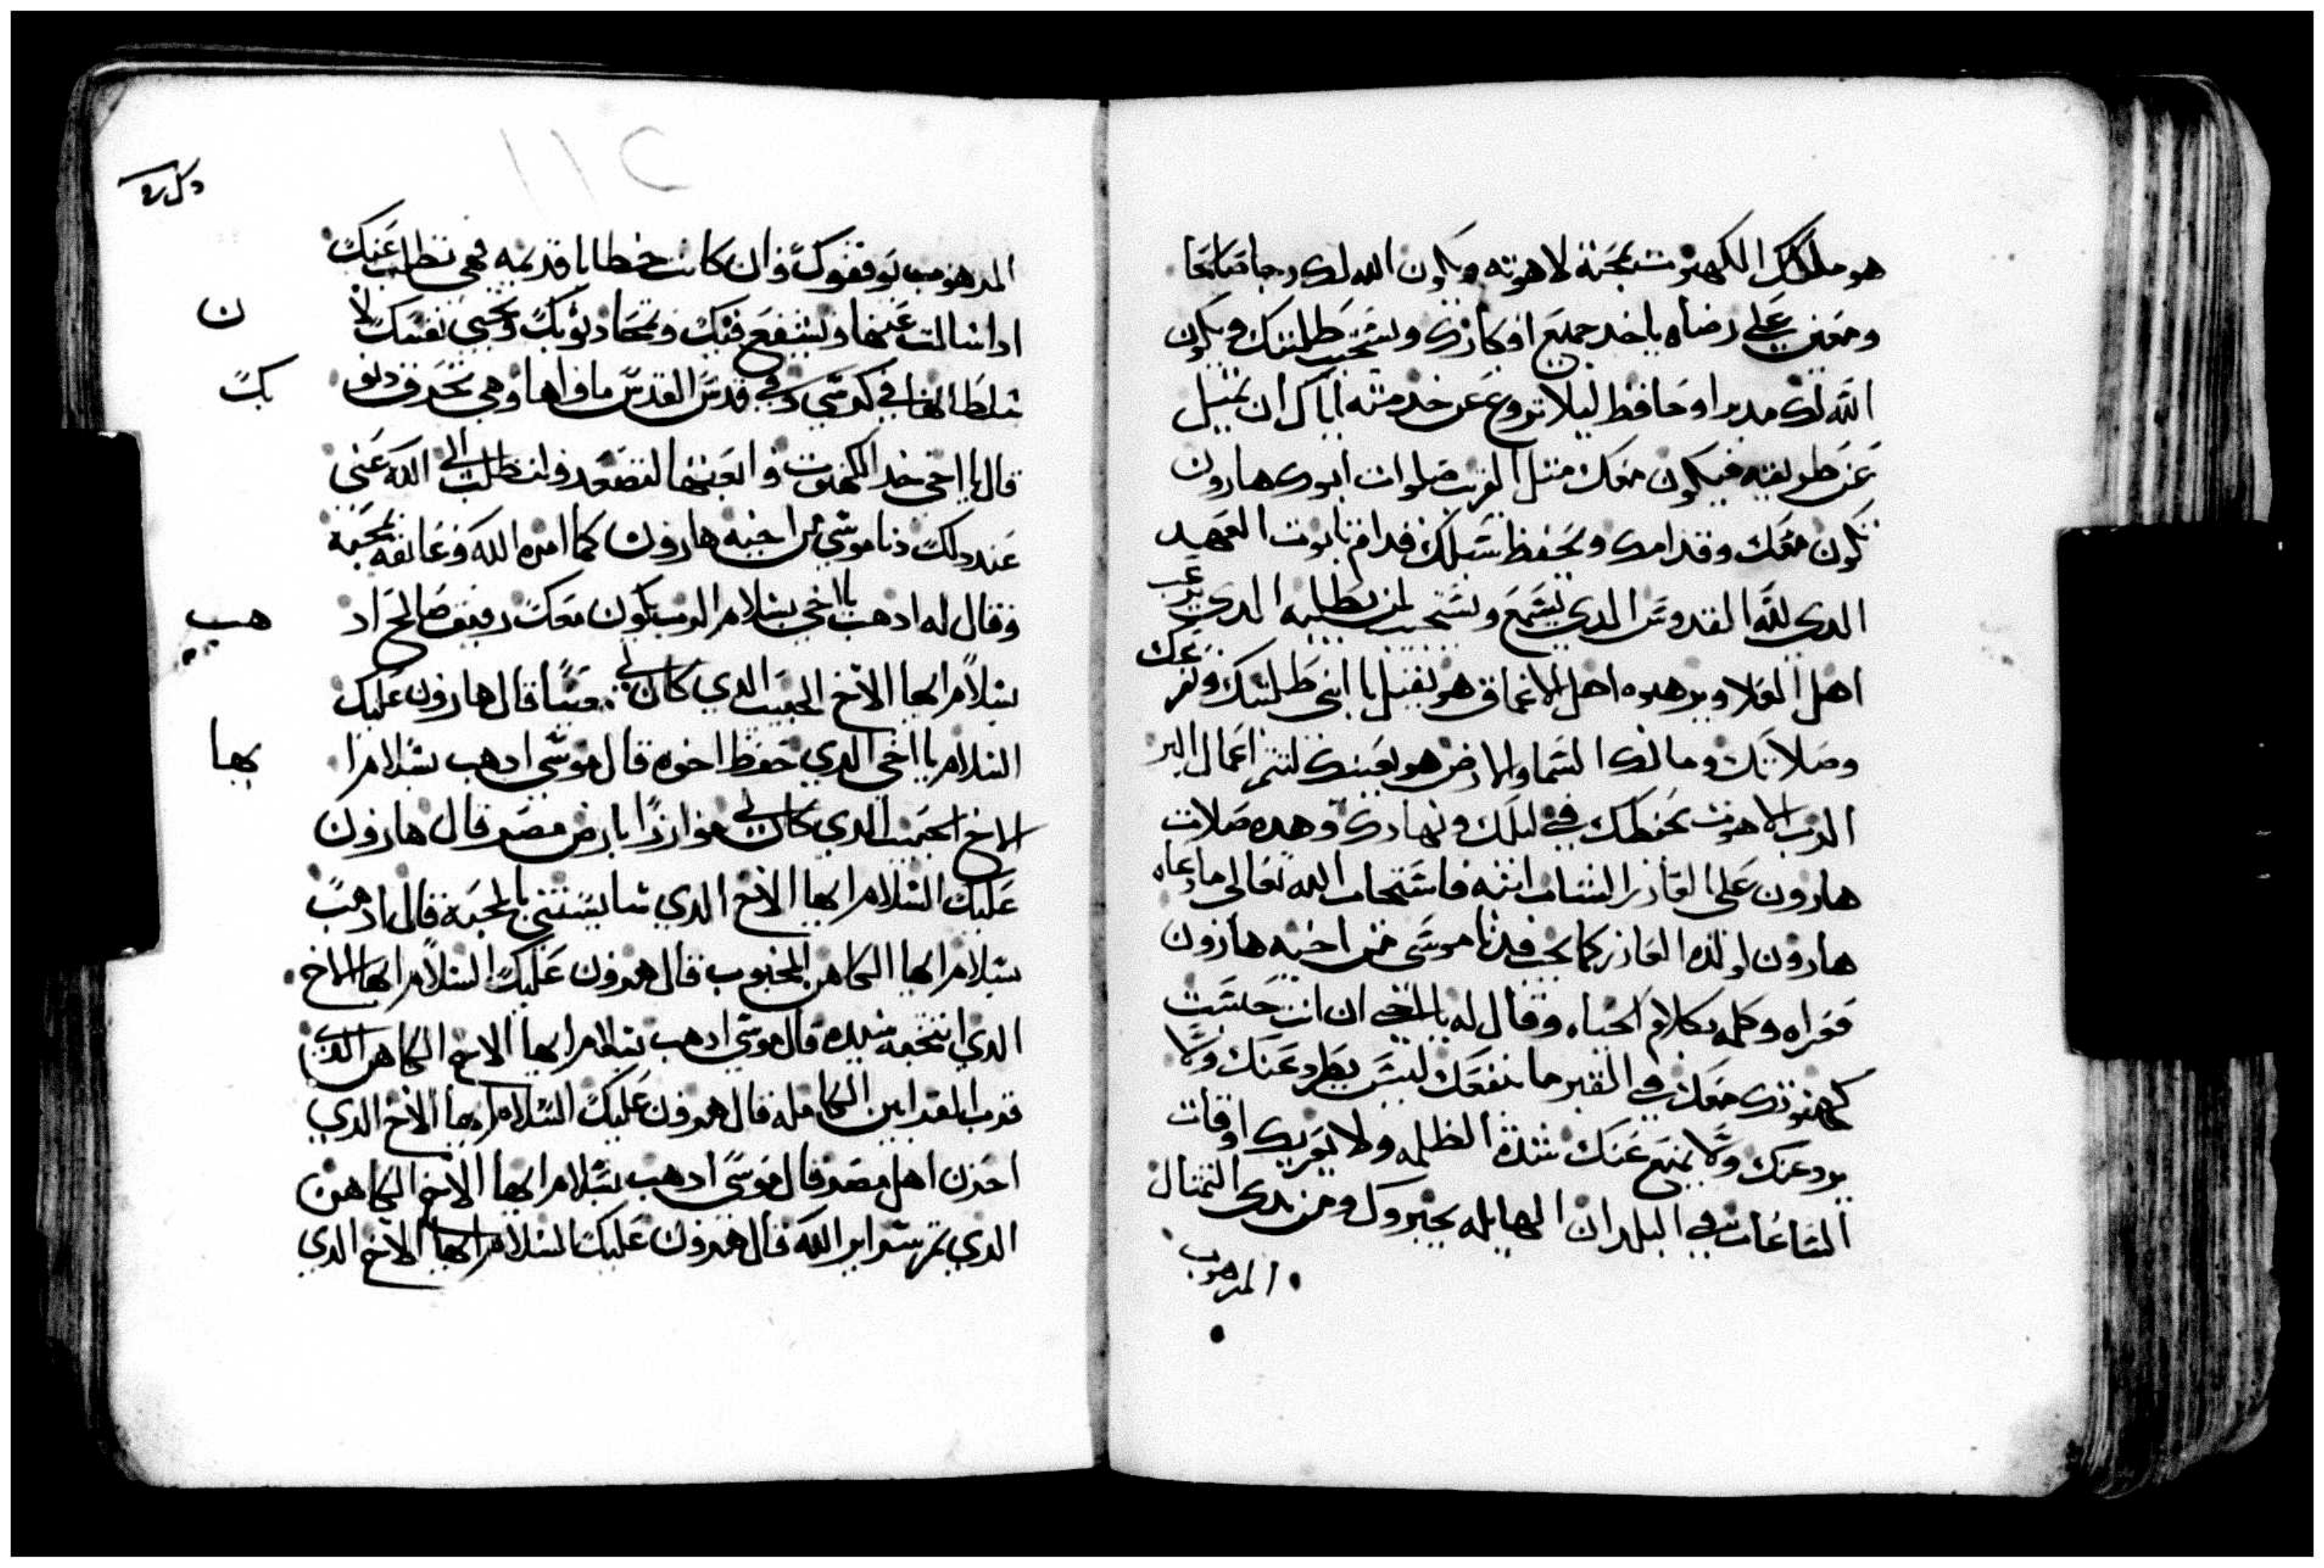 هو ملكك الكهنوت بمحبة لاهوته ويكون الله لك رجا صالحا
ومعين على رضاه ياخد جميع اوكارك ويستجيب طلبتك ويكون
الله لك مدبرا وحافظ ليلا تروغ عن خدمته اياك ان تميل
عن طريقته فيكون معك متل القريب صلوات ابوك هارون
تكون معك وقدامك ويحفظ سبلك قدام تابوت العهد
الدي لله القدوس الدي يسمع ويستجيب لمن يطلبه الدي
اهل العلا ويرهبوه اهل الاعماق هو يقبل يا ابني طلبتك
وصلاتك ومالك السما والارض هو يعينك لتتم اعمال البر
الرب الاهوت يحفظك في ليلك ونهارك وهده صلات
هارون على العازر الشاب ابنه فاستجاب الله تعالى ما دعاه
هارون لولده العازر كما يجب فدنا موسى من اخيه هارون
فعراه وكلمه بكلام الحياه وقال له يا اخي ان انت جلست
كهنوتك معك في القبر ما ينفعك ليس يطرد عنك ولا
يرد عنك ولا يمنع عنك شدة الظلمه ولا يعريك اوقات
الساعات في البلدان الهايله يخبروك ومن يدي التمتال
المدهوب
المدهوب يوقفوك وان كانت خطايا قديمه فهي تطلب عنك
ادا سالت عنها ويشفع فيك وتمحا دنوبك وتحيي نفسك لا
سلطا لها في كرسي في قدس القدس ماواها وهي تحرق دنو بك
قال يا اخي خد الكهنوت والعبنها لتصعد وانت طلب الى الله عني
عند دلك دنا موسى من اخيه هارون كما امره الله وعانقه بمحبة
وقال له ادهب يا اخي بسلام الرب يكون معك رفيق صالح اد هب
بسلام ايها الاخ الحبيب الدي كان لي معينا قال هارون عليك
السلام يا اخي الدي حفظ اخوه قال موسى ادهب بسلام ا يها
الاخ الحبيب الدي كان لي موازرا بارض مصر قال هارون
عليك السلام ايها الاخ الدي سايستني بالمحبة قال ادهب
بسلام ايها الكاهن المحبوب قال هرون عليك السلام ايها الاخ
الدي انتخبه سيده قال موسى ادهب بسلام ايها الاخ الكاهن الدي
قرب القرابين الكامله قال هرون عليك السلام ايها الاخ الدي
احزن اهل مصر قال موسى ادهب بسلام ايها الاخ الكاهن
الدي تم سراير الله قال هرون عليك السلام ايها الاخ الدي